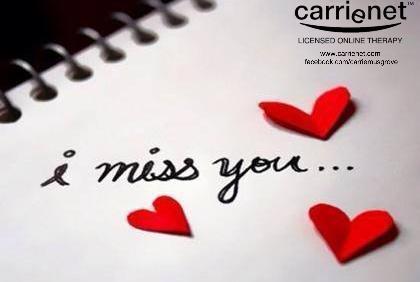 carrienet™
LICENSED ONLINE THERAPY
www.carrienet.com
facebook.com/carriemusgrove
i miss you...